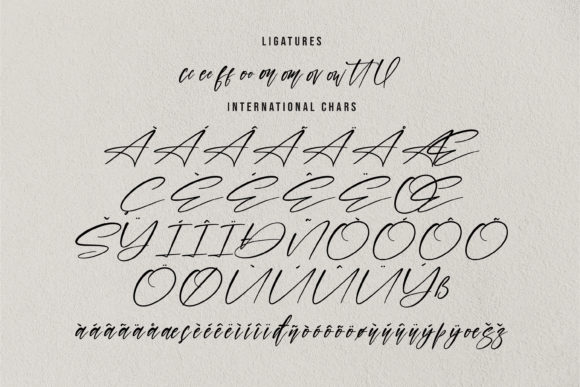 LIGATURES
cc ee ff oo on om ov ow tt ll
INTERNATIONAL CHARS
À Á Â Ã Ä Å Æ
Ç È É Ê Ë Œ
Š Ÿ Í Î Ï Ð Ñ Ò Ó Ô Õ
Ö Ø Ù Ú Û Ü Ý ß
àáâãäåæçèéêëìíîïđñòóôõöøùúûüýþÿœšž